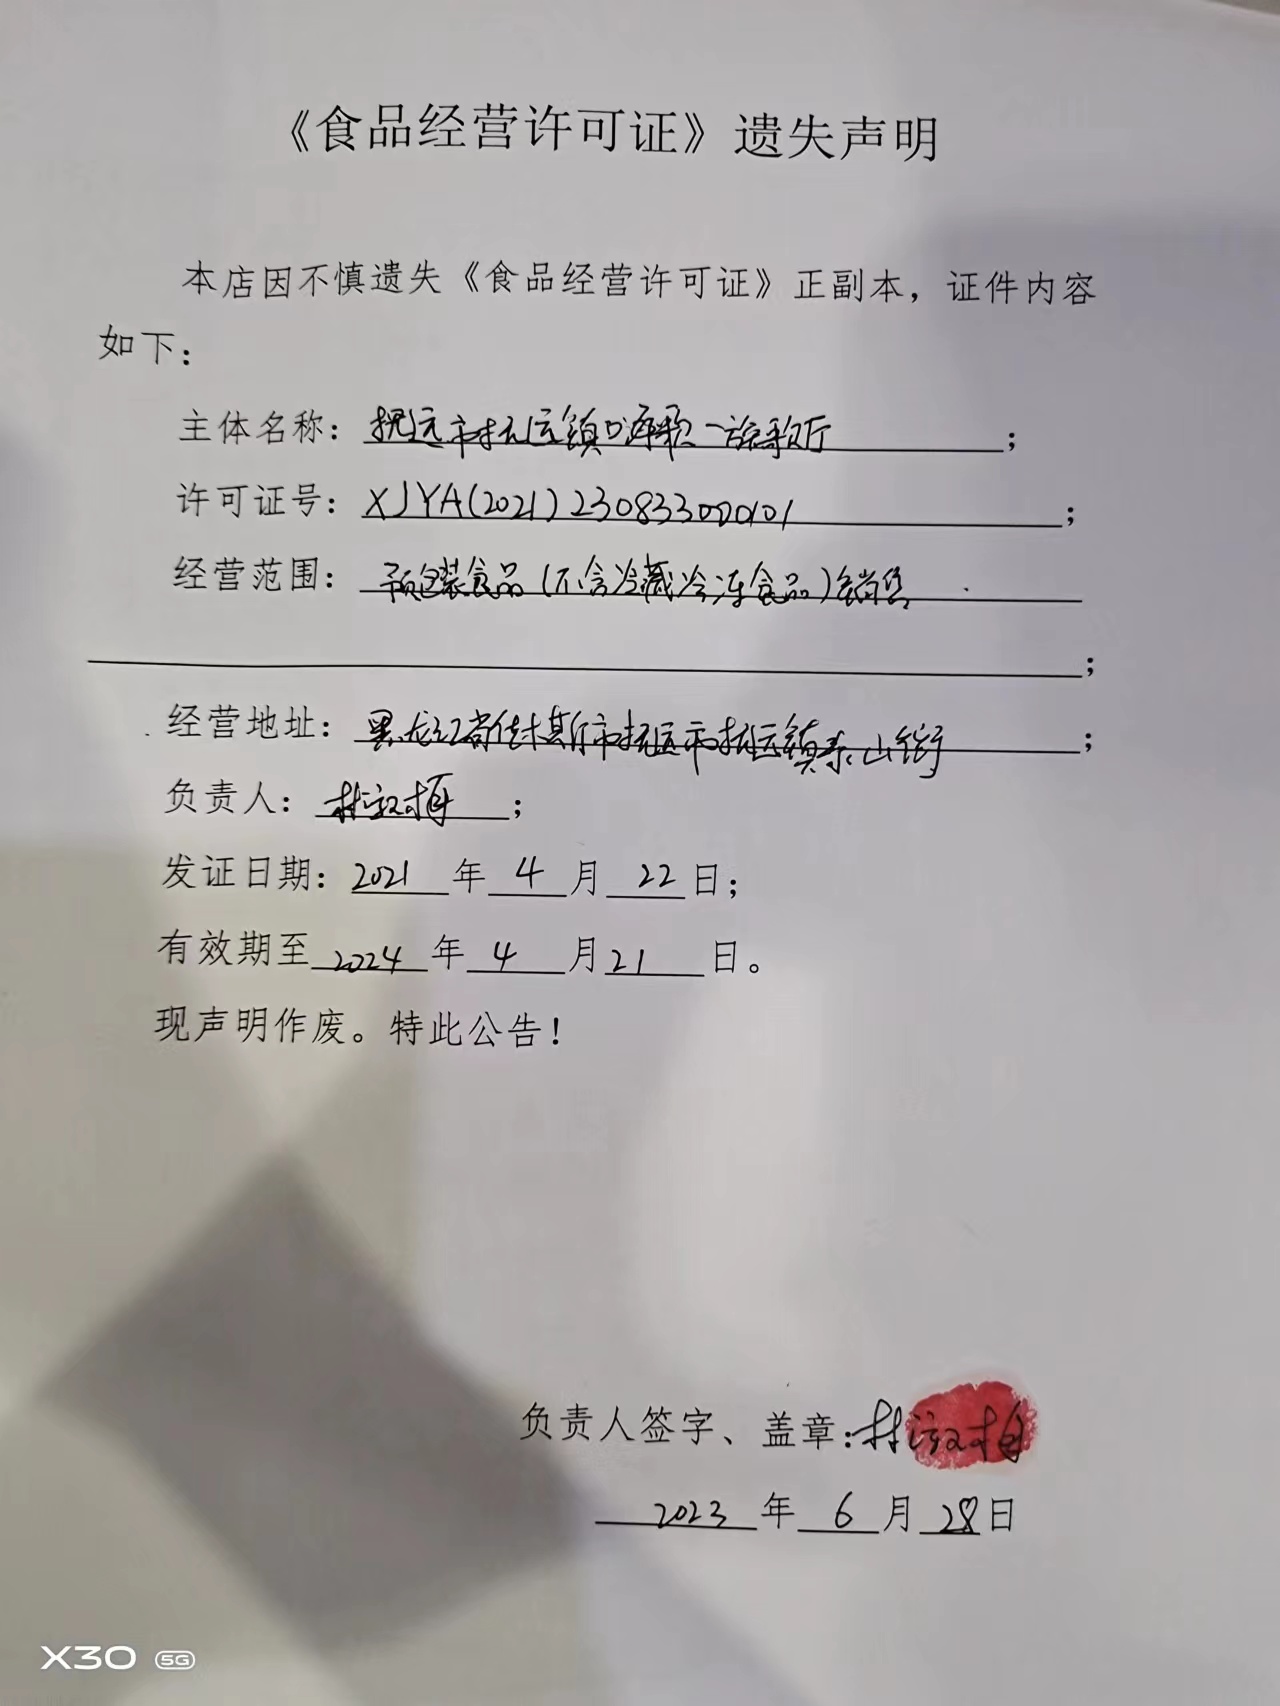 《食品经营许可证》遗失声明
本店因不慎遗失《食品经营许可证》正副本，证件内容
如下：
主体名称：抚远市抚远镇嗨歌一族歌厅；
许可证号：XJYA(2021)230833000101；
经营范围：预包装食品(不含冷藏冷冻食品)销售
；
经营地址：黑龙江省佳木斯市抚远市抚远镇东山街；
负责人：；
发证日期：2021年4月22日；
有效期至2024年4月21日。
现声明作废。特此公告！
负责人签字、盖章：
2023年6月28日
X30 5G